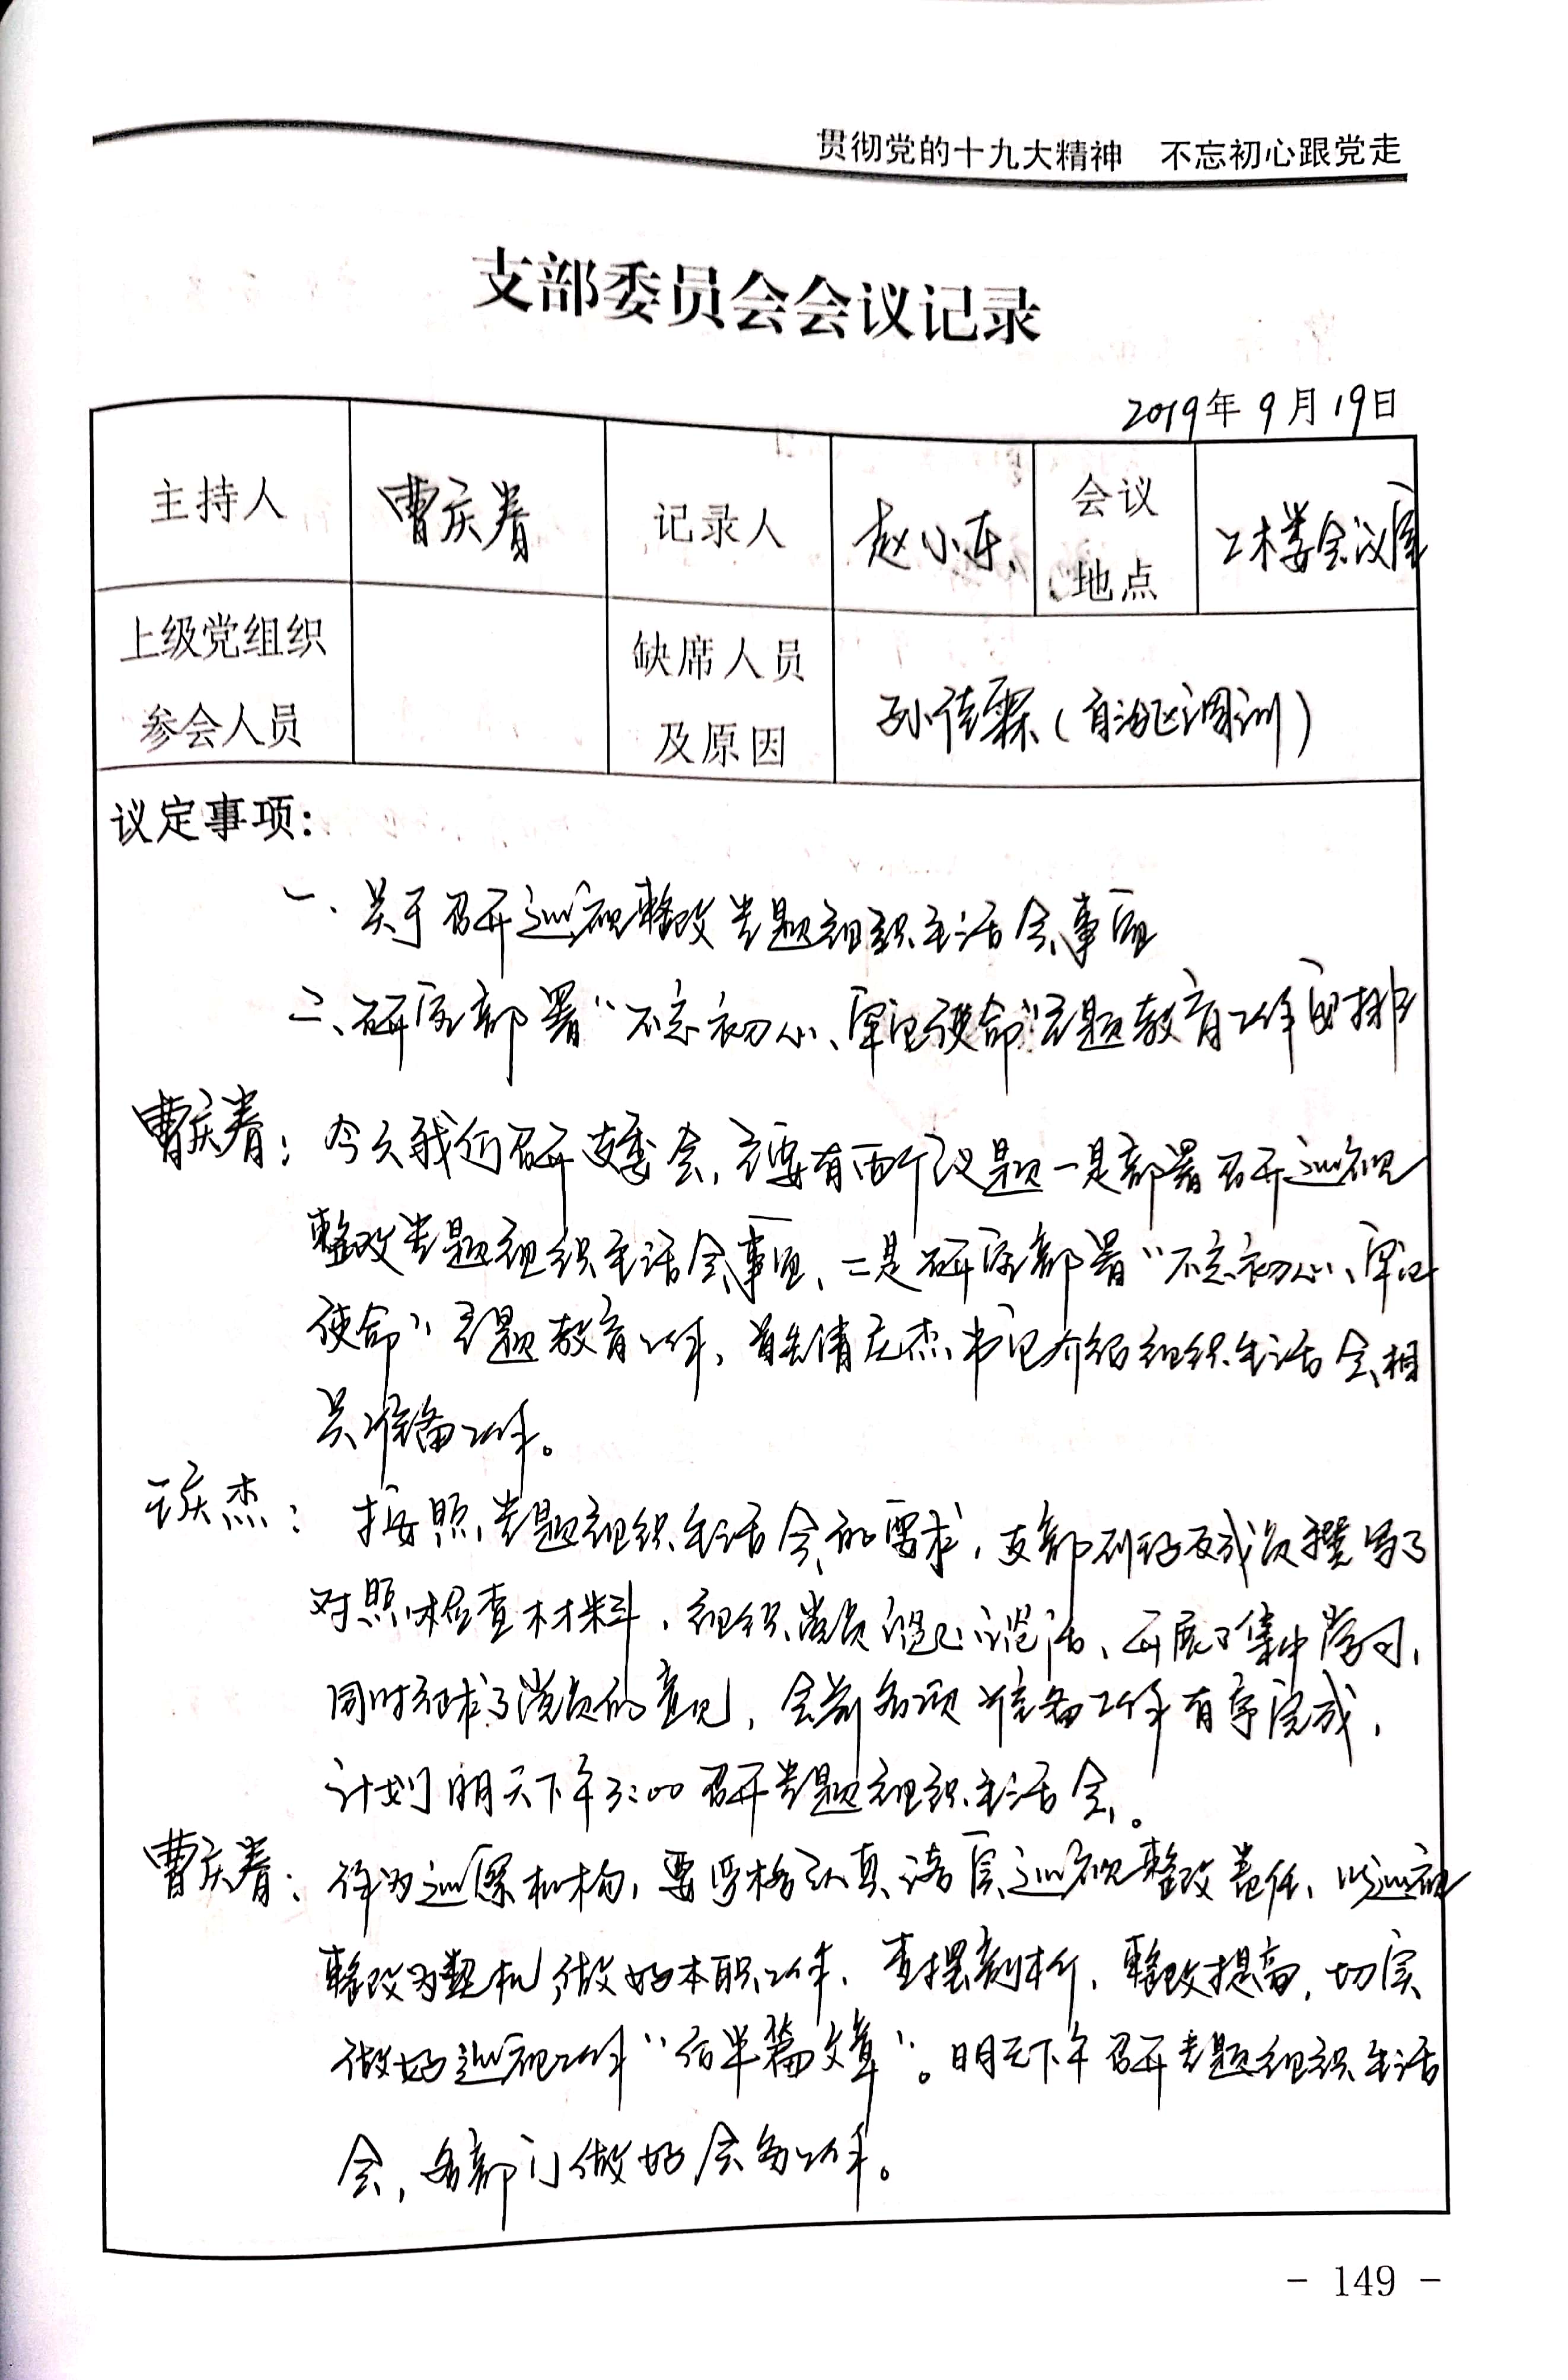 贯彻党的十九大精神 不忘初心跟党走
支部委员会会议记录
2019年9月19日
主持人 曹庆春 记录人 赵小东 会议地点 2楼会议室
上级党组织参会人员 缺席人员及原因 孙佳霖(自治区调训)
议定事项:
一、关于召开巡视整改专题组织生活会事宜
二、研究部署“不忘初心、牢记使命”主题教育工作安排
曹庆春:今天我们召开支委会,主要有两个议题一是部署召开巡视
整改专题组织生活会事宜、二是研究部署“不忘初心、牢记
使命”主题教育工作,首先请庆杰书记介绍组织生活会相
关准备工作。
王庆杰:按照专题组织生活会的要求,支部班子及成员撰写了
对照检查材料,组织党员谈心谈话、开展了集中学习,
同时征求了党员的意见,会前各项准备工作有序完成,
计划明天下午3:00召开专题组织生活会。
曹庆春:作为巡察机构,要严格认真落实巡视整改责任,以巡视
整改为契机,做好本职工作,查摆剖析,整改提高,切实
做好巡视工作“后半篇文章”。明天下午召开专题组织生活
会,各部门做好会务工作。
- 149 -